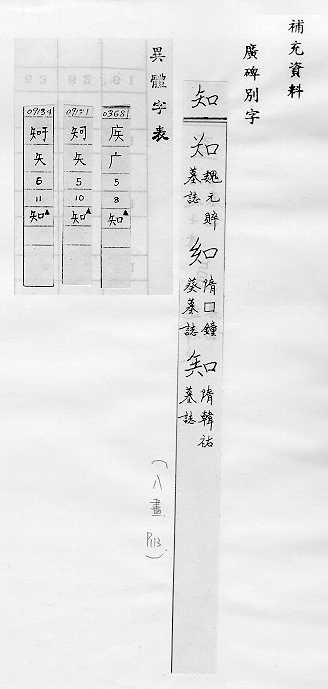 補充資料
廣碑別字
知
知
魏元賥
墓誌
知
隋口鐘
葵墓誌
知
隋韓祐
墓誌
(八畫 P113)
異體字表
03681
疾
广
5
8
知▲
矢
5
10
知▲
矢
6
11
知▲